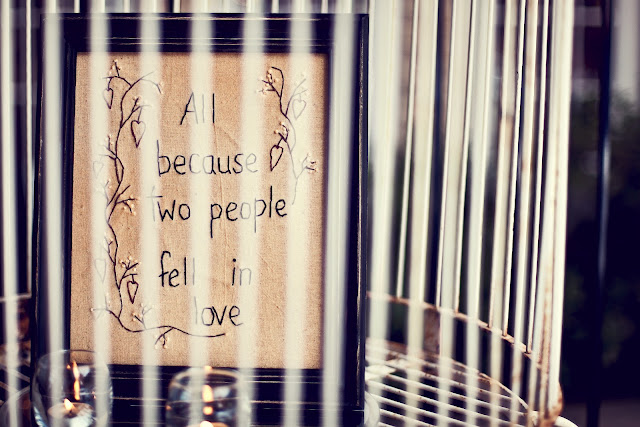 All
because
two people
fell in
love